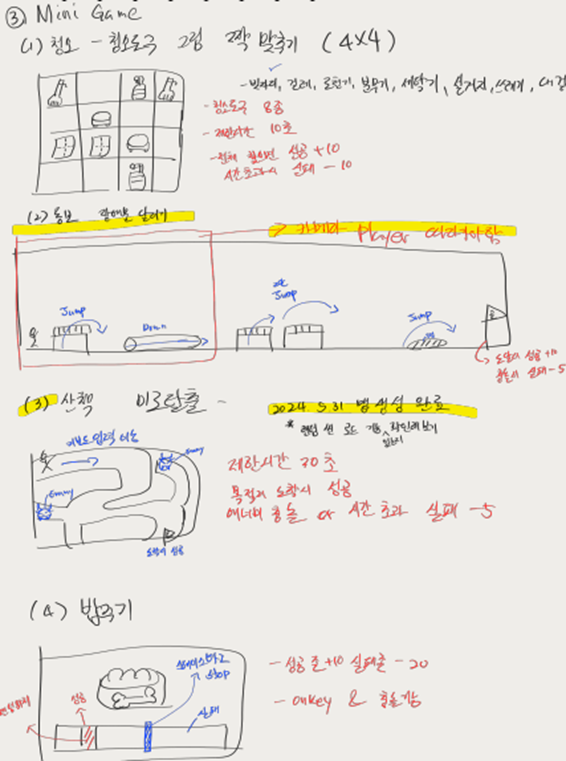 ③ Mini Game
(1) 청소 - 청소도구 그림 짝 맞추기 (4X4)
걸레, 분무기, 세탁기, 설거지, 쓰레기,
- 청소도구 8종
- 제한시간 10초
성공 +10
시간초과시 실패 -10
(2) 장애물 달리기
→ 카메라 Player 따라가야함
Jump
Down
2단 Jump
Jump
도착시 성공 +10
충돌시 실패 -5
(3) 산책 미로탈출 -
2024 5.31 맵 생성 완료
* 랜덤 씬 로드 기능 확인해보기
키보드 입력 이동
Enemy
Enemy
도착시 성공
제한시간 30초
목적지 도착시 성공
에너미 충돌 or 시간초과 실패 -5
(4) 밥주기
스페이스바로 Stop
성공
실패
- 성공존 +10 실패존 -20
- onkey & 충돌감